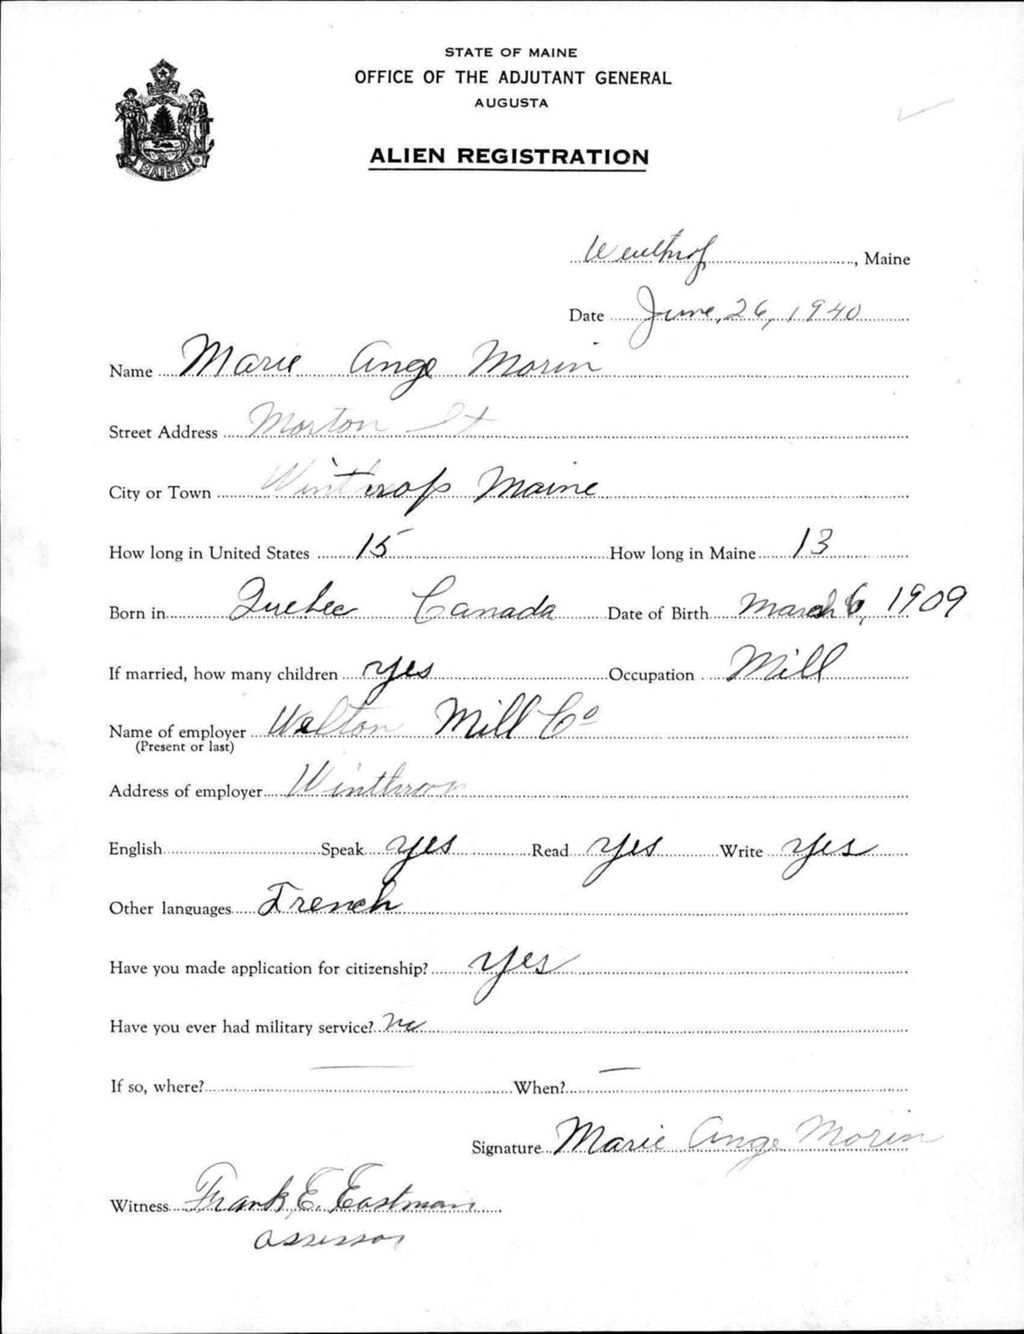 STATE OF MAINE
OFFICE OF THE ADJUTANT GENERAL
AUGUSTA
ALIEN REGISTRATION
MAINE
Winthrop, Maine
Date June, 26, 1940
Name Marie Ange Morin
Street Address Morton St
City or Town Winthrop Maine
How long in United States 15 How long in Maine 13
Born in Quebec Canada Date of Birth March 6, 1909
If married, how many children yes Occupation Mill
Name of employer Walton Mill Co
(Present or last)
Address of employer Winthrop
English Speak yes Read Yes Write Yes
Other languages French
Have you made application for citizenship? Yes
Have you ever had military service? no
If so, where? — When? —
Signature Marie Ange Morin
Witness Frank E. Eastman
assessor